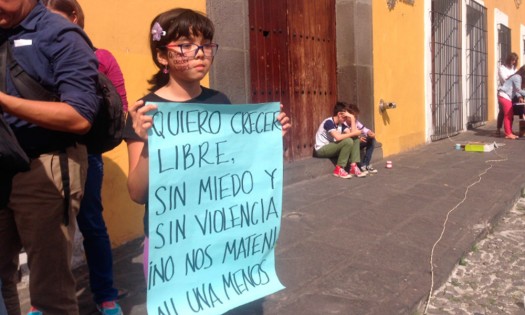 QUIERO CRECER
LIBRE,
SIN MIEDO Y
SIN VIOLENCIA
¡NO NOS MATEN!
NI UNA MENOS